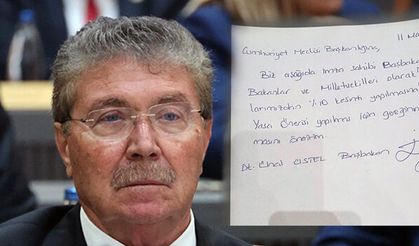 11 Ma
Cumhuriyet Meclisi Başkanlığına,
Biz aşağıda imza sahibi Başbaka
Bakanlar ve Milletvekilleri olarak
larımızdan %10 kesinti yapılmasın
Yasa Önerisi yapılması için
masını
Dt. Ünal ÜSTEL Başbakan